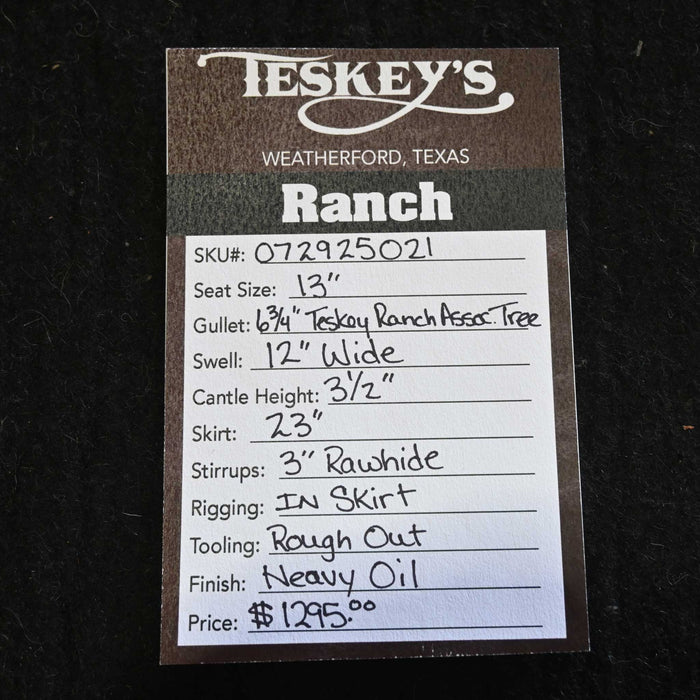 TESKEY'S
WEATHERFORD, TEXAS
Ranch
SKU#: 072925021
Seat Size: 13"
Gullet: 6 3/4" Teskey Ranch Assoc. Tree
Swell: 12" Wide
Cantle Height: 3 1/2"
Skirt: 23"
Stirrups: 3" Rawhide
Rigging: IN SKirt
Tooling: Rough Out
Finish: Heavy Oil
Price: $1295.00